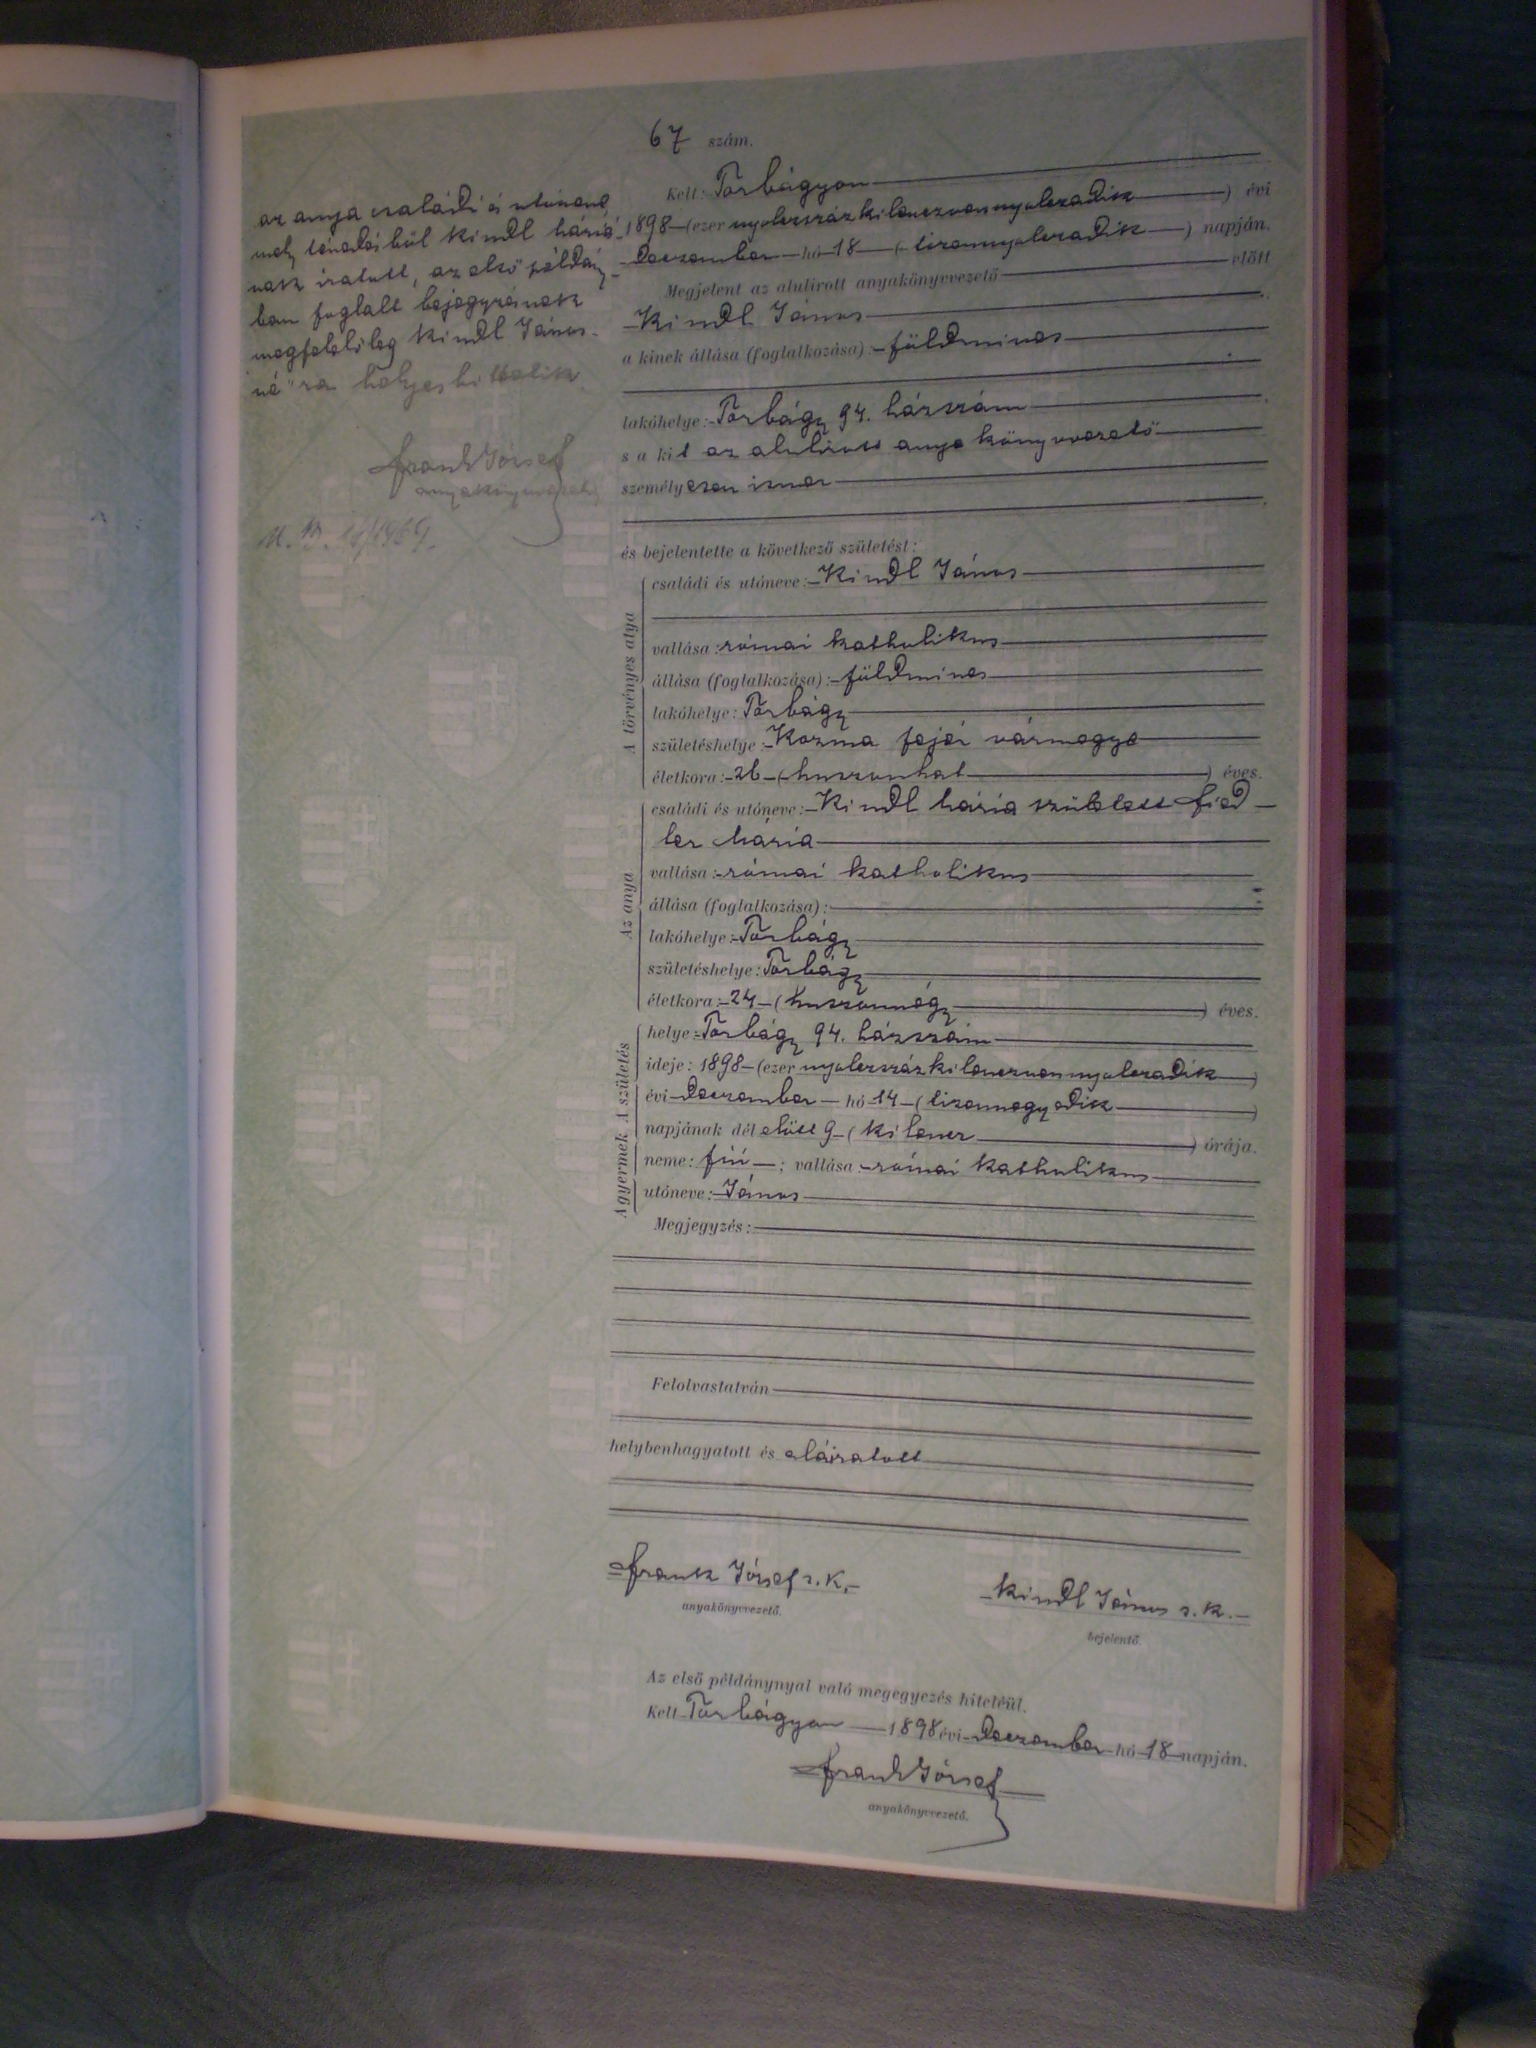 67 szám.
az anya családi és utónevé-
mely tévedésből Kindl Máriá-
nak iratott, az első példány-
ban foglalt bejegyzésnek
megfelelőleg Kindl János-
né"ra helyesbittetik.
Frank József
anyakönyvvezető
Kelt: Torbágyon
1898 (ezer nyolczszázkilenczvennyolczadik) évi
Deczember hó 18 (tizennyolczadik) napján.
Megjelent az alulirott anyakönyvvezető előtt
Kindl János
a kinek állása (foglalkozása): földmives
lakóhelye: Torbágy 94. házszám
s a kit az alulirott anyakönyvvezető
személyesen ismer
és bejelentette a következő születést:
A törvényes atya
családi és utóneve: Kindl János
vallása: római katholikus
állása (foglalkozása): földmives
lakóhelye: Torbágy
születéshelye: Kozma fejér vármegye
életkora: 26 (huszonhat) éves.
Az anya
családi és utóneve: Kindl Mária született Fied-
ler Mária
vallása: római katholikus
állása (foglalkozása):
lakóhelye: Torbágy
születéshelye: Torbágy
életkora: 24 (huszonnégy) éves.
A gyermek A születés
helye: Torbágy 94. házszám
ideje: 1898 (ezer nyolczszázkilenczvennyolczadik)
évi Deczember hó 14 (tizennegyedik)
napjának dél előtt 9 (kilencz) órája.
neme: fiú; vallása: római katholikus
utóneve: János
Megjegyzés:
Felolvastatván
helybenhagyatott és aláiratott
Frank József s. k.
anyakönyvvezető.
Kindl János s. k.
bejelentő.
Az első példánynyal való megegyezés hiteléül.
Kelt Torbágyon 1898 évi Deczember hó 18 napján.
Frank József
anyakönyvvezető.